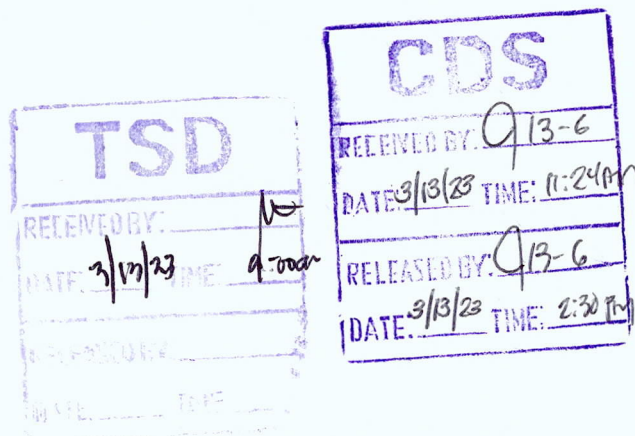 TSD
RECEIVED BY:
DATE: 3/13/23 TIME: 9:00am
RELEASED BY:
DATE: TIME:
CDS
RECEIVED BY: 13-6
DATE: 3/13/23 TIME: 11:24AM
RELEASED BY: 13-6
DATE: 3/13/23 TIME: 2:30 PM